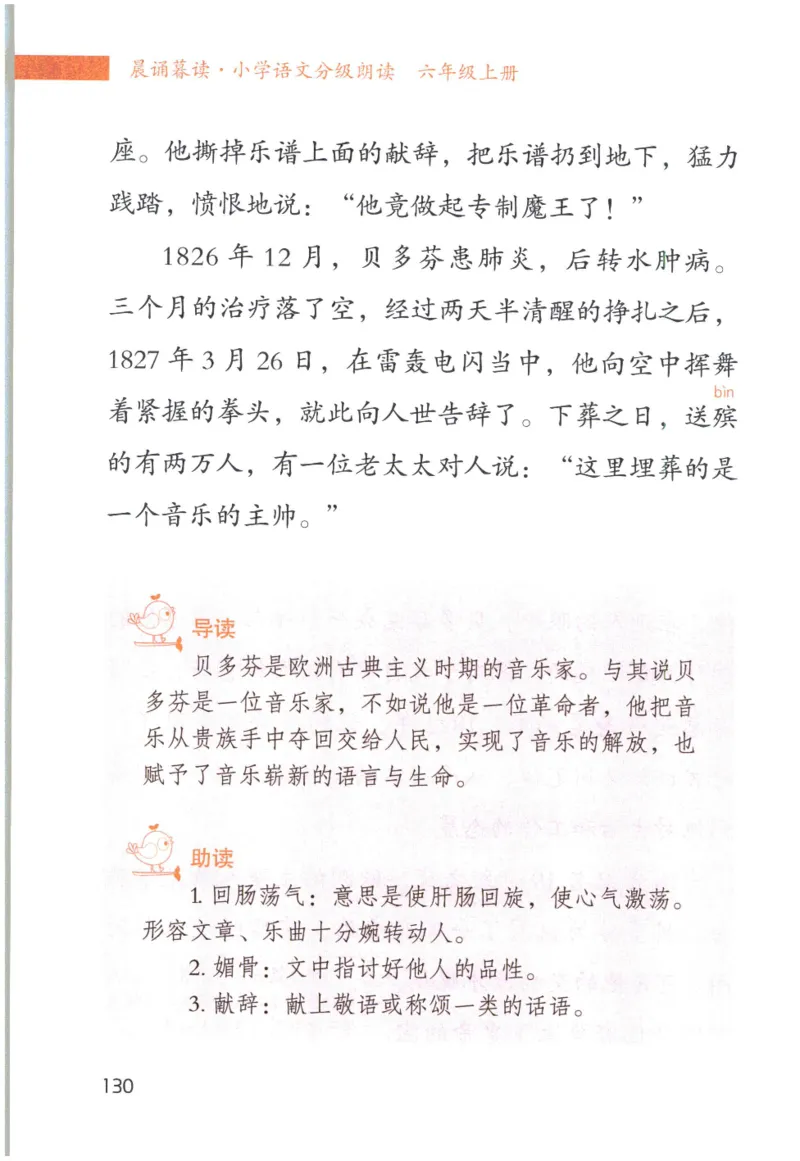 晨诵暮读·小学语文分级朗读 六年级上册
座。他撕掉乐谱上面的献辞，把乐谱扔到地下，猛力
践踏，愤恨地说：“他竟做起专制魔王了！”
1826 年 12 月，贝多芬患肺炎，后转水肿病。
三个月的治疗落了空，经过两天半清醒的挣扎之后，
1827 年 3 月 26 日，在雷轰电闪当中，他向空中挥舞
bìn
着紧握的拳头，就此向人世告辞了。下葬之日，送殡
的有两万人，有一位老太太对人说：“这里埋葬的是
一个音乐的主帅。”
导读
贝多芬是欧洲古典主义时期的音乐家。与其说贝
多芬是一位音乐家，不如说他是一位革命者，他把音
乐从贵族手中夺回交给人民，实现了音乐的解放，也
赋予了音乐崭新的语言与生命。
助读
1. 回肠荡气：意思是使肝肠回旋，使心气激荡。
形容文章、乐曲十分婉转动人。
2. 媚骨：文中指讨好他人的品性。
3. 献辞：献上敬语或称颂一类的话语。
130